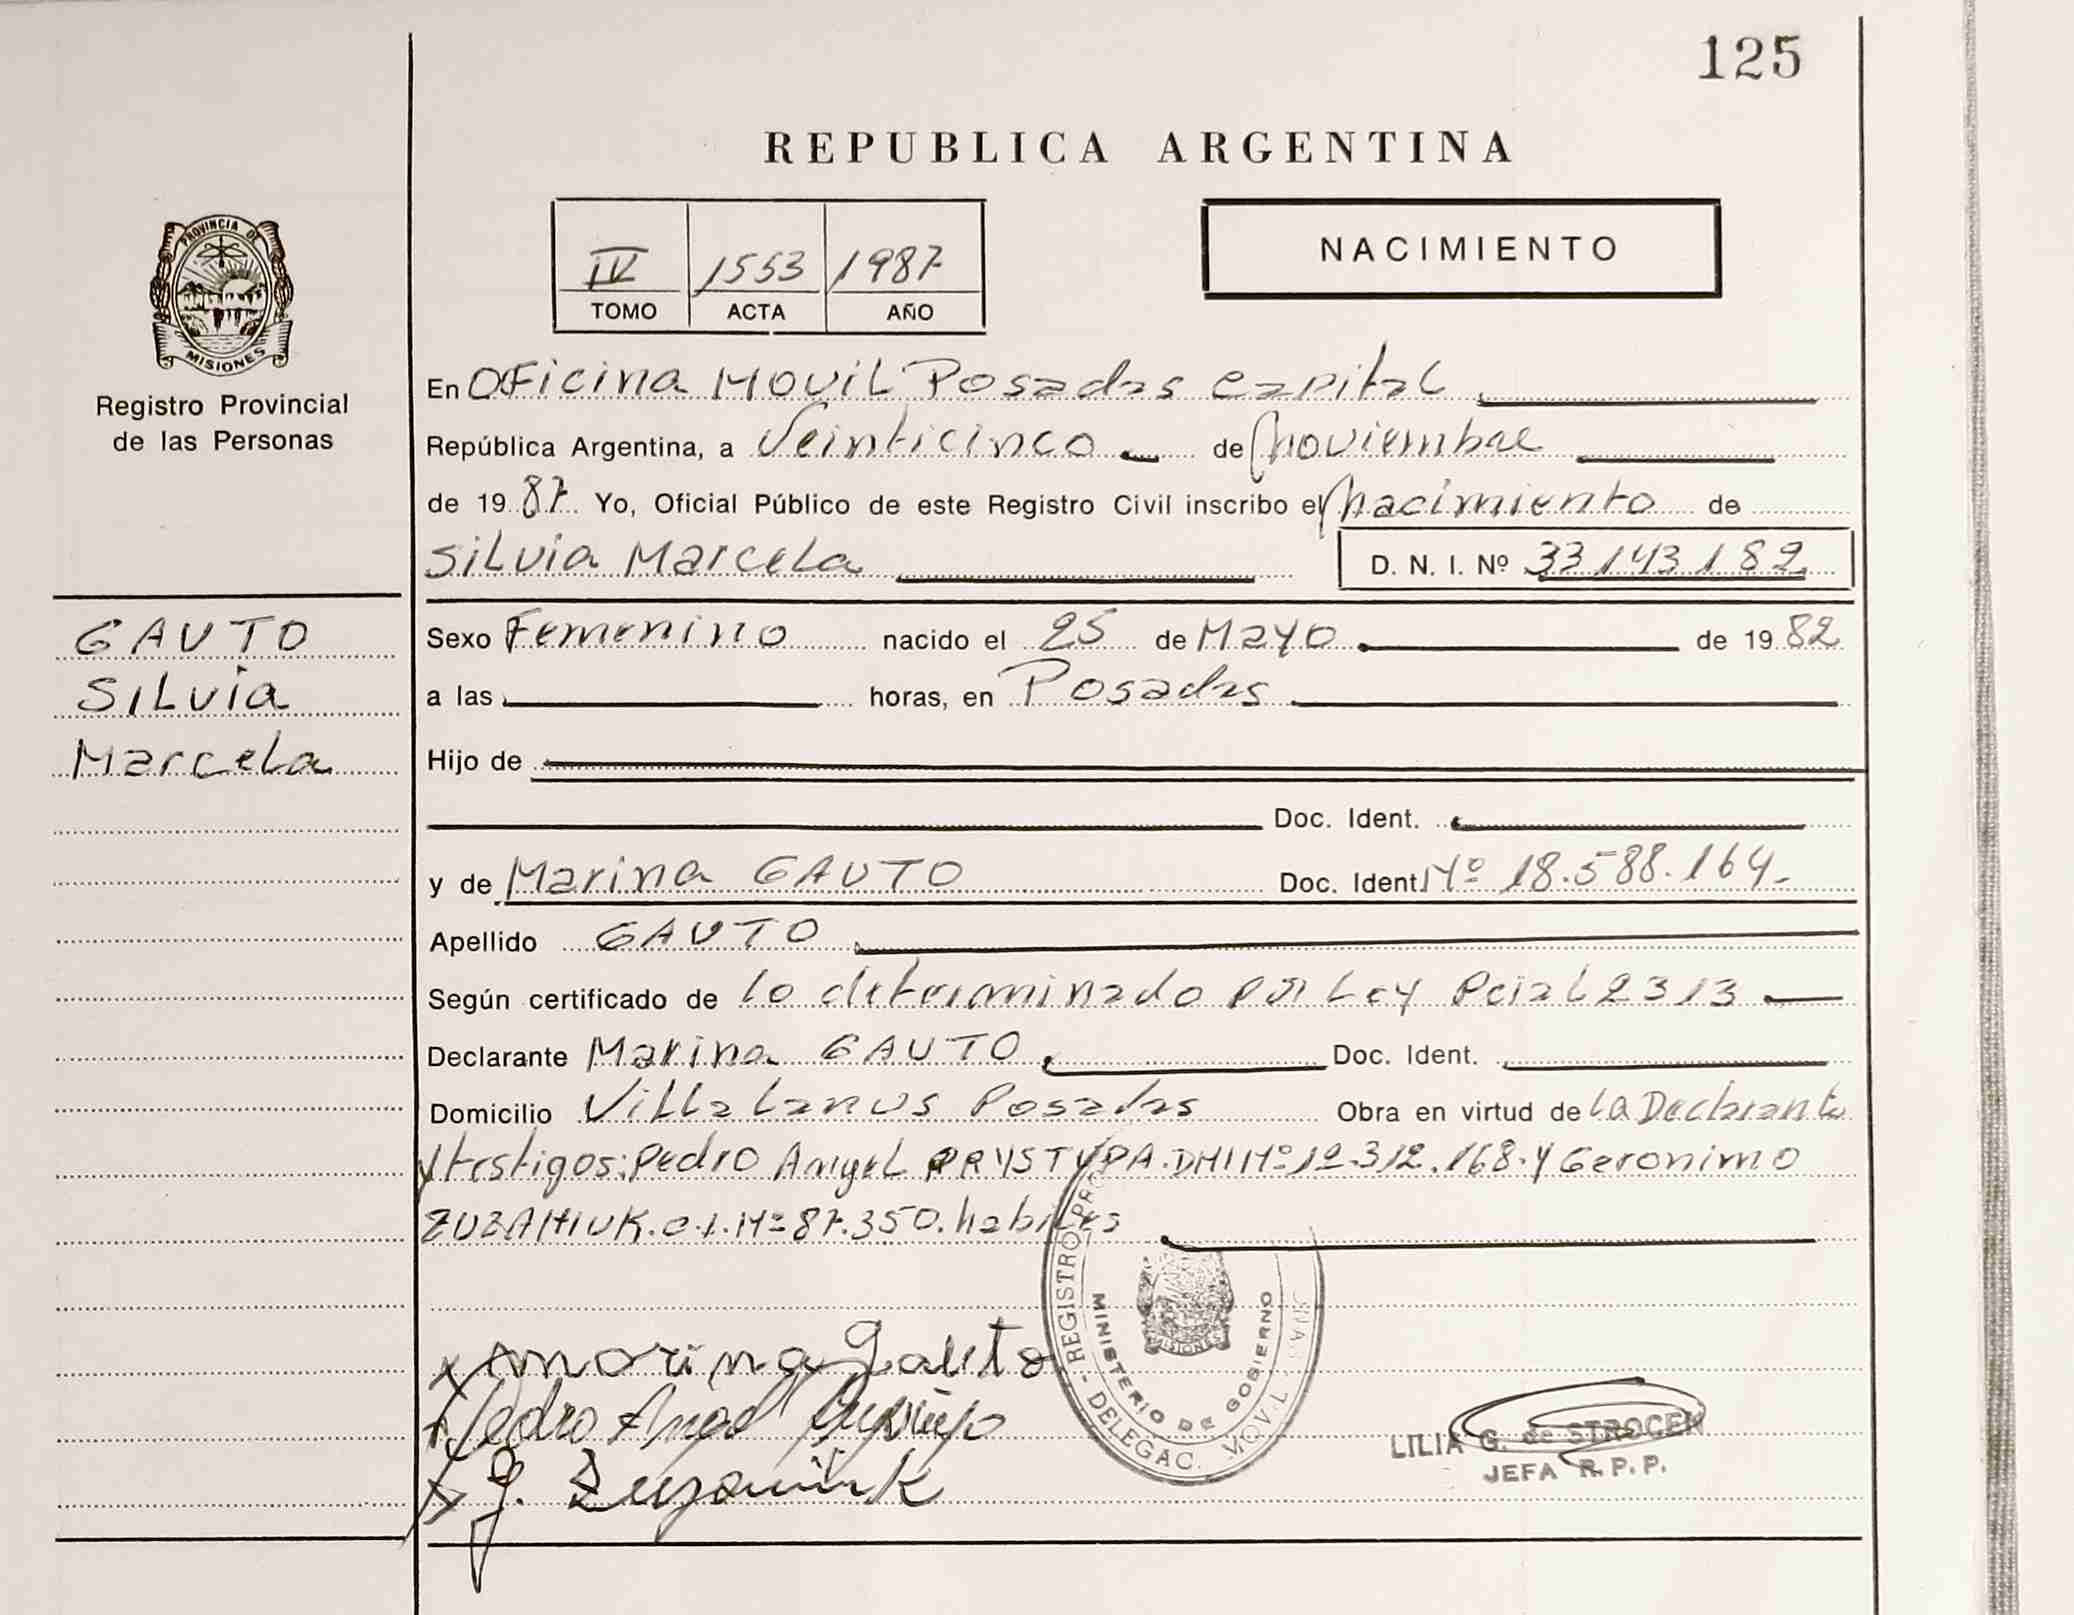 125
REPUBLICA ARGENTINA
PROVINCIA DE
MISIONES
Registro Provincial
de las Personas
IV 1553 1987
TOMO ACTA AÑO
NACIMIENTO
En Oficina Movil Posadas Capital
República Argentina, a Veinticinco de noviembre
de 1987. Yo, Oficial Público de este Registro Civil inscribo el nacimiento de
Silvia Marcela D. N. I. Nº 33143182
GAUTO
Silvia
Marcela
Sexo Femenino nacido el 25 de Mayo de 1982
a las horas, en Posadas
Hijo de
Doc. Ident.
y de Marina GAUTO Doc. Ident Nº 18.588.164.
Apellido GAUTO
Según certificado de lo determinado por Ley Pcial 2313
Declarante Marina GAUTO Doc. Ident.
Domicilio Villa Lanus Posadas Obra en virtud de la Declarante
y testigos: Pedro Angel DNI Nº 12.312.168. y Geronimo
C.I. Nº 87.350. habiles
REGISTRO
MINISTERIO DE GOBIERNO
DELEGAC. MOVIL
MISIONES
Marina Gauto
Pedro Angel
LILIA G. de STROCEN
JEFA R.P.P.